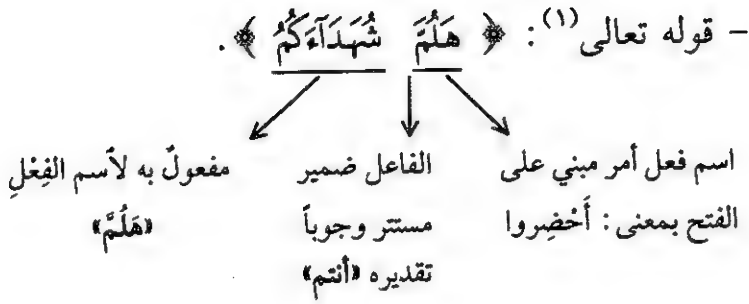 – قوله تعالى(١): ﴿ هَلُمَّ شُهَدَآءَكُمُ ﴾ .
اسم فعل أمر مبني على
الفتح بمعنى: أَحْضِروا
الفاعل ضمير
مستتر وجوباً
تقديره «أنتم»
مفعولٌ به لاَسم الفِعْلِ
«هَلُمَّ»